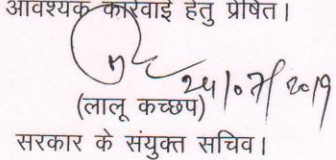 आवश्यक कार्रवाई हेतु प्रेषित।
24/07/2019
(लालू कच्छप)
सरकार के संयुक्त सचिव।